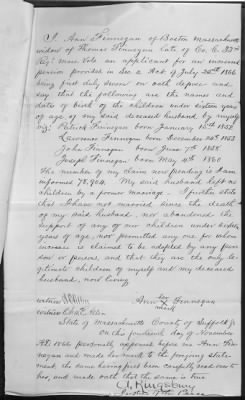 I Ann Finnegan of Boston Massachusetts
widow of Thomas Finnegan late of Co. C. 32d
Reg't Mass. Vols. an applicant for an increased
pension provided in Sec. 2 Act of July 25th 1866
being first duly sworn on oath depose and
say that the following are the names and
date of birth of the children under sixteen years
of age of my said deceased husband by myself
viz: Patrick Finnegan born January 10th 1852
Lawrence Finnegan born December 1853
John Finnegan born June 7th 1858
Joseph Finnegan born May 4th 1860
The number of my claim now pending is I am
informed 78,904. My said husband left no
children by a former marriage. I further state
that I have not married since the death
of my said husband, nor abandoned the
support of any of our children under sixteen
years of age, nor permitted any one for whom
increase is claimed to be adopted by any per-
son or persons, and that they are the only le-
gitimate children of myself and my deceased
husband, now living
witness Ann her Finnegan
witness mark
State of Massachusetts County of Suffolk ss
On this day of November
A.D. 1866 personally appeared before me Ann Finn-
egan and made her mark to the foregoing state-
ment, the same having first been carefully read over to
her, and made oath that the same is true
Kingsbury
Justice of the Peace